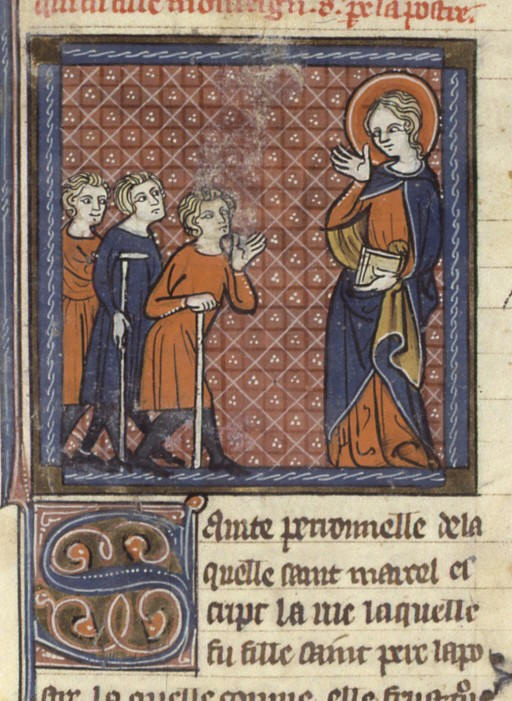 qui fu fille monseign. S. pere lapostre.
Sainte perronnelle de la
quelle saint marcel es
cript la uie laquelle
fu fille saint pere lapo
stre la quelle comme elle feust